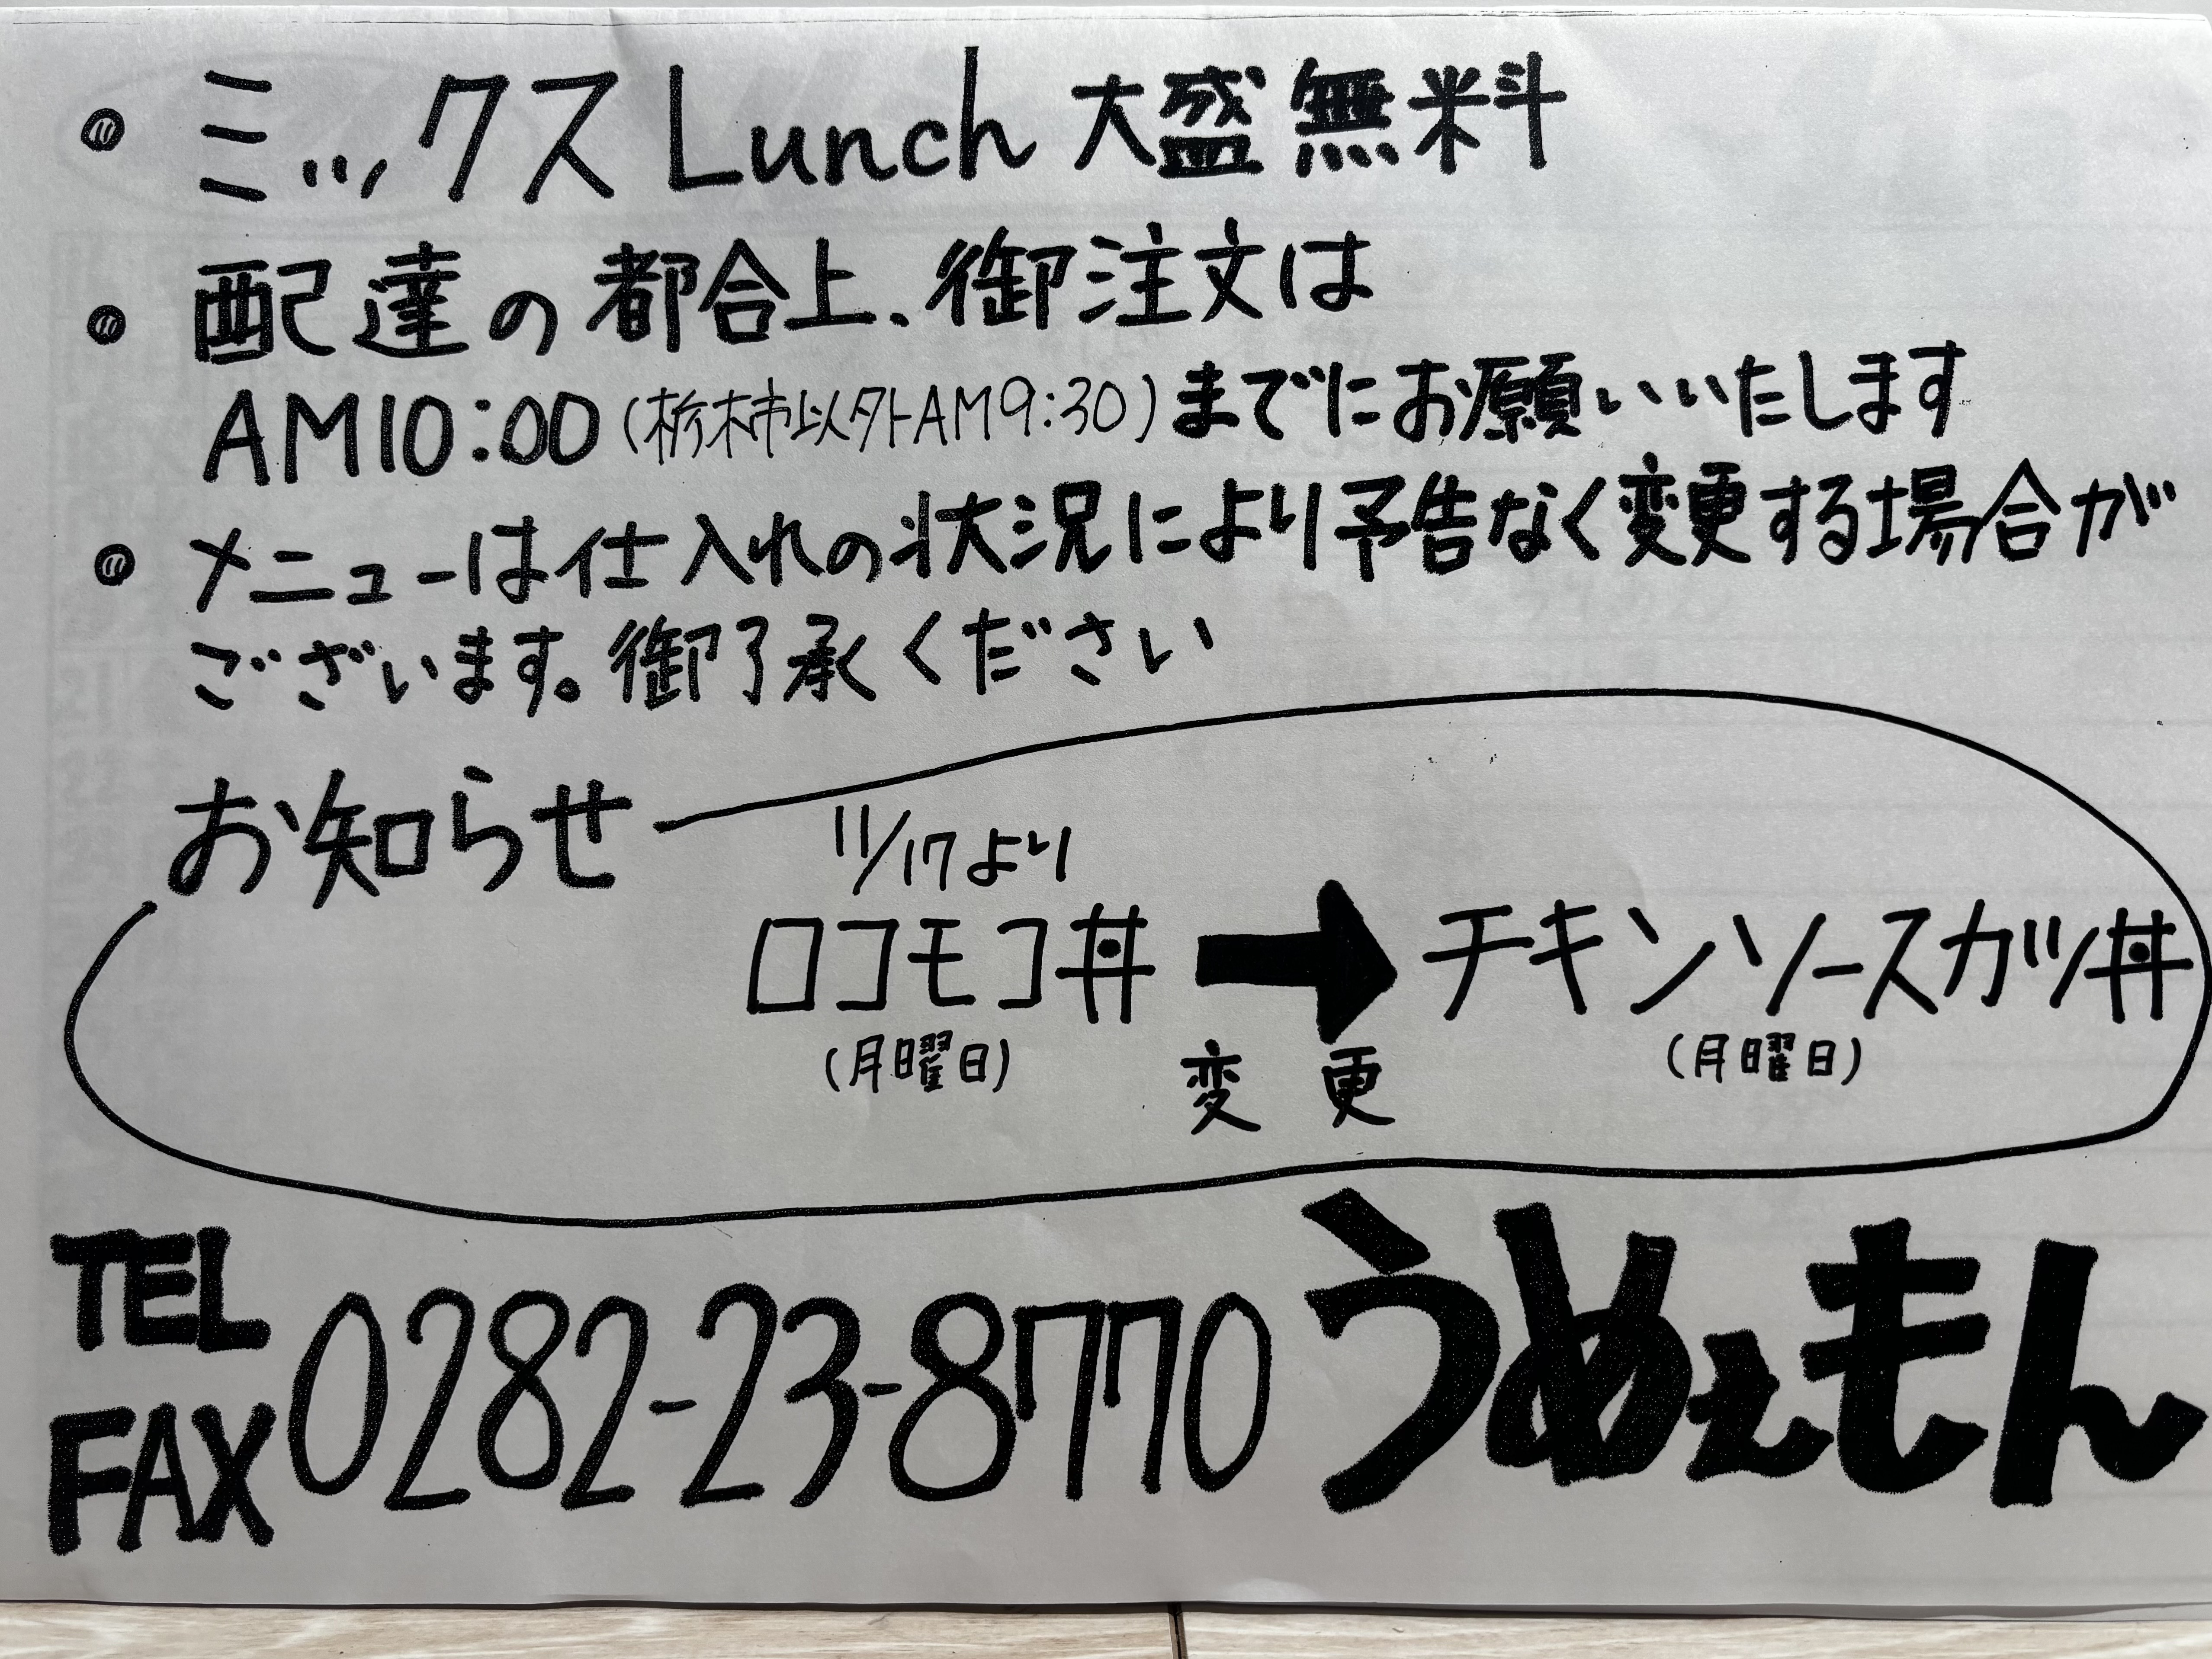 • ミックスLunch 大盛無料
• 配達の都合上、御注文は
AM10:00(栃木市以外AM9:30)までにお願いいたします
• メニューは仕入れの状況により予告なく変更する場合が
ございます。御了承ください
お知らせ
11/17より
ロコモコ丼 ➡ チキンソースカツ丼
(月曜日) 変更 (月曜日)
TEL
FAX 0282-23-8770 うめぇもん